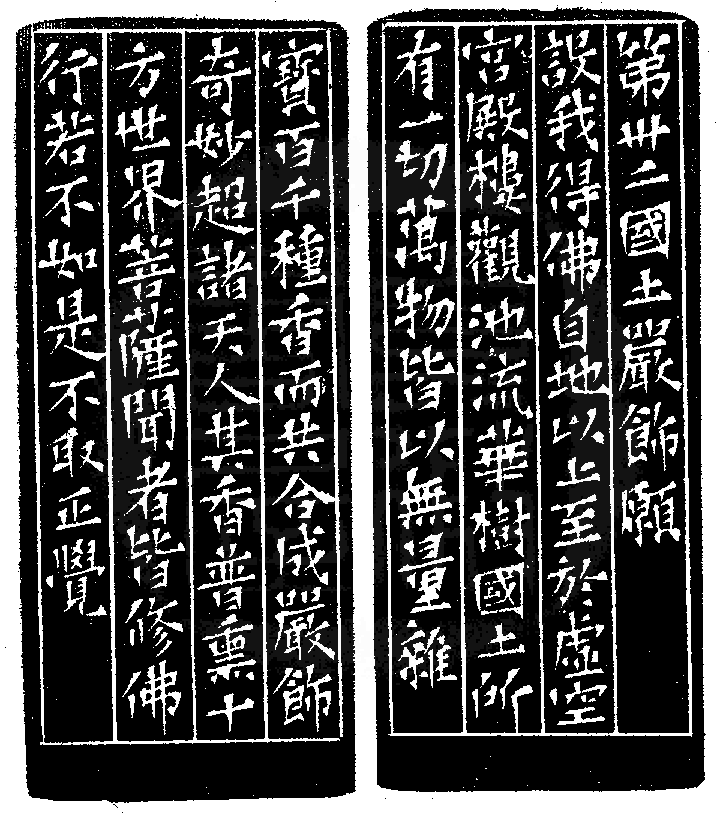 第卅二國土嚴飾願
設我得佛自地以上至於虛空
宮殿樓觀池流華樹國土所
有一切萬物皆以無量雜
寶百千種香而共合成嚴飾
奇妙超諸天人其香普熏十
方世界菩薩聞者皆修佛
行若不如是不取正覺